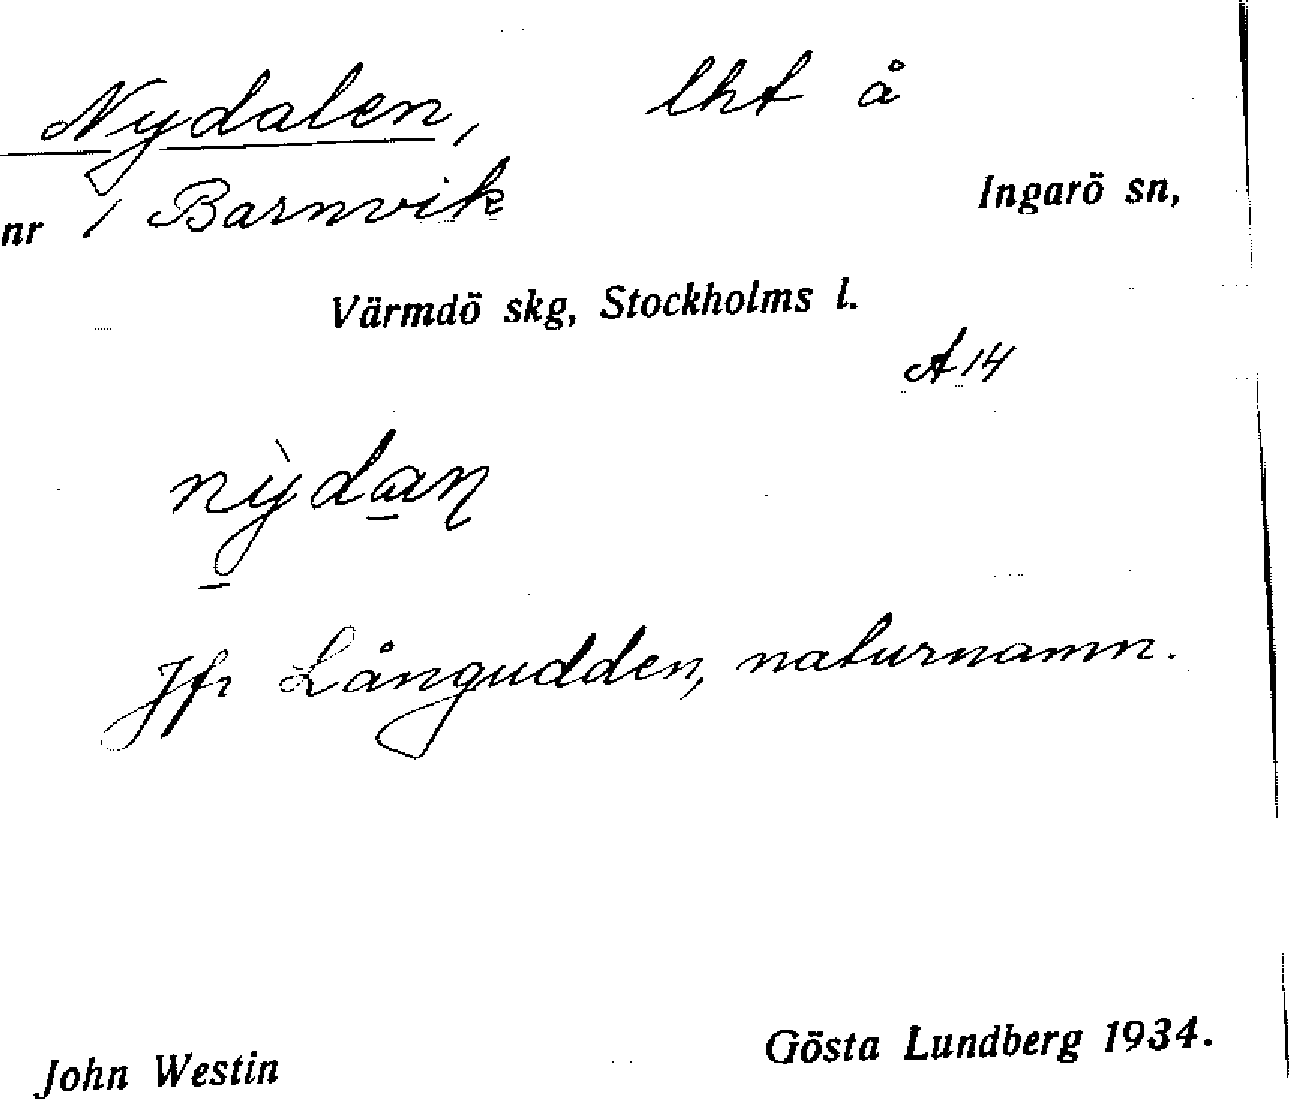 Nydalen, lht å
nr 1 Barnvik Ingarö sn,
Värmdö skg, Stockholms l.
A 14
nỳdaṉ
Jfr Långudden, naturnamn.
John Westin Gösta Lundberg 1934.